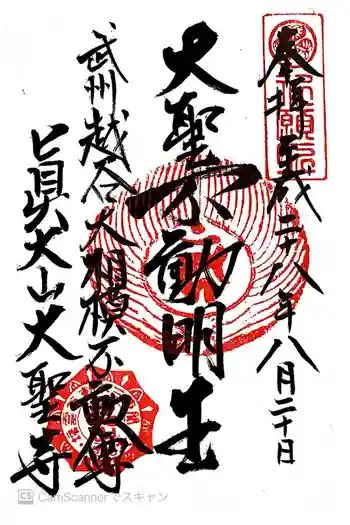 奉拝 平成二十八年八月二十日
大聖不動明王
武州越谷大相模不動尊
真大山大聖寺
CS CamScannerでスキャン